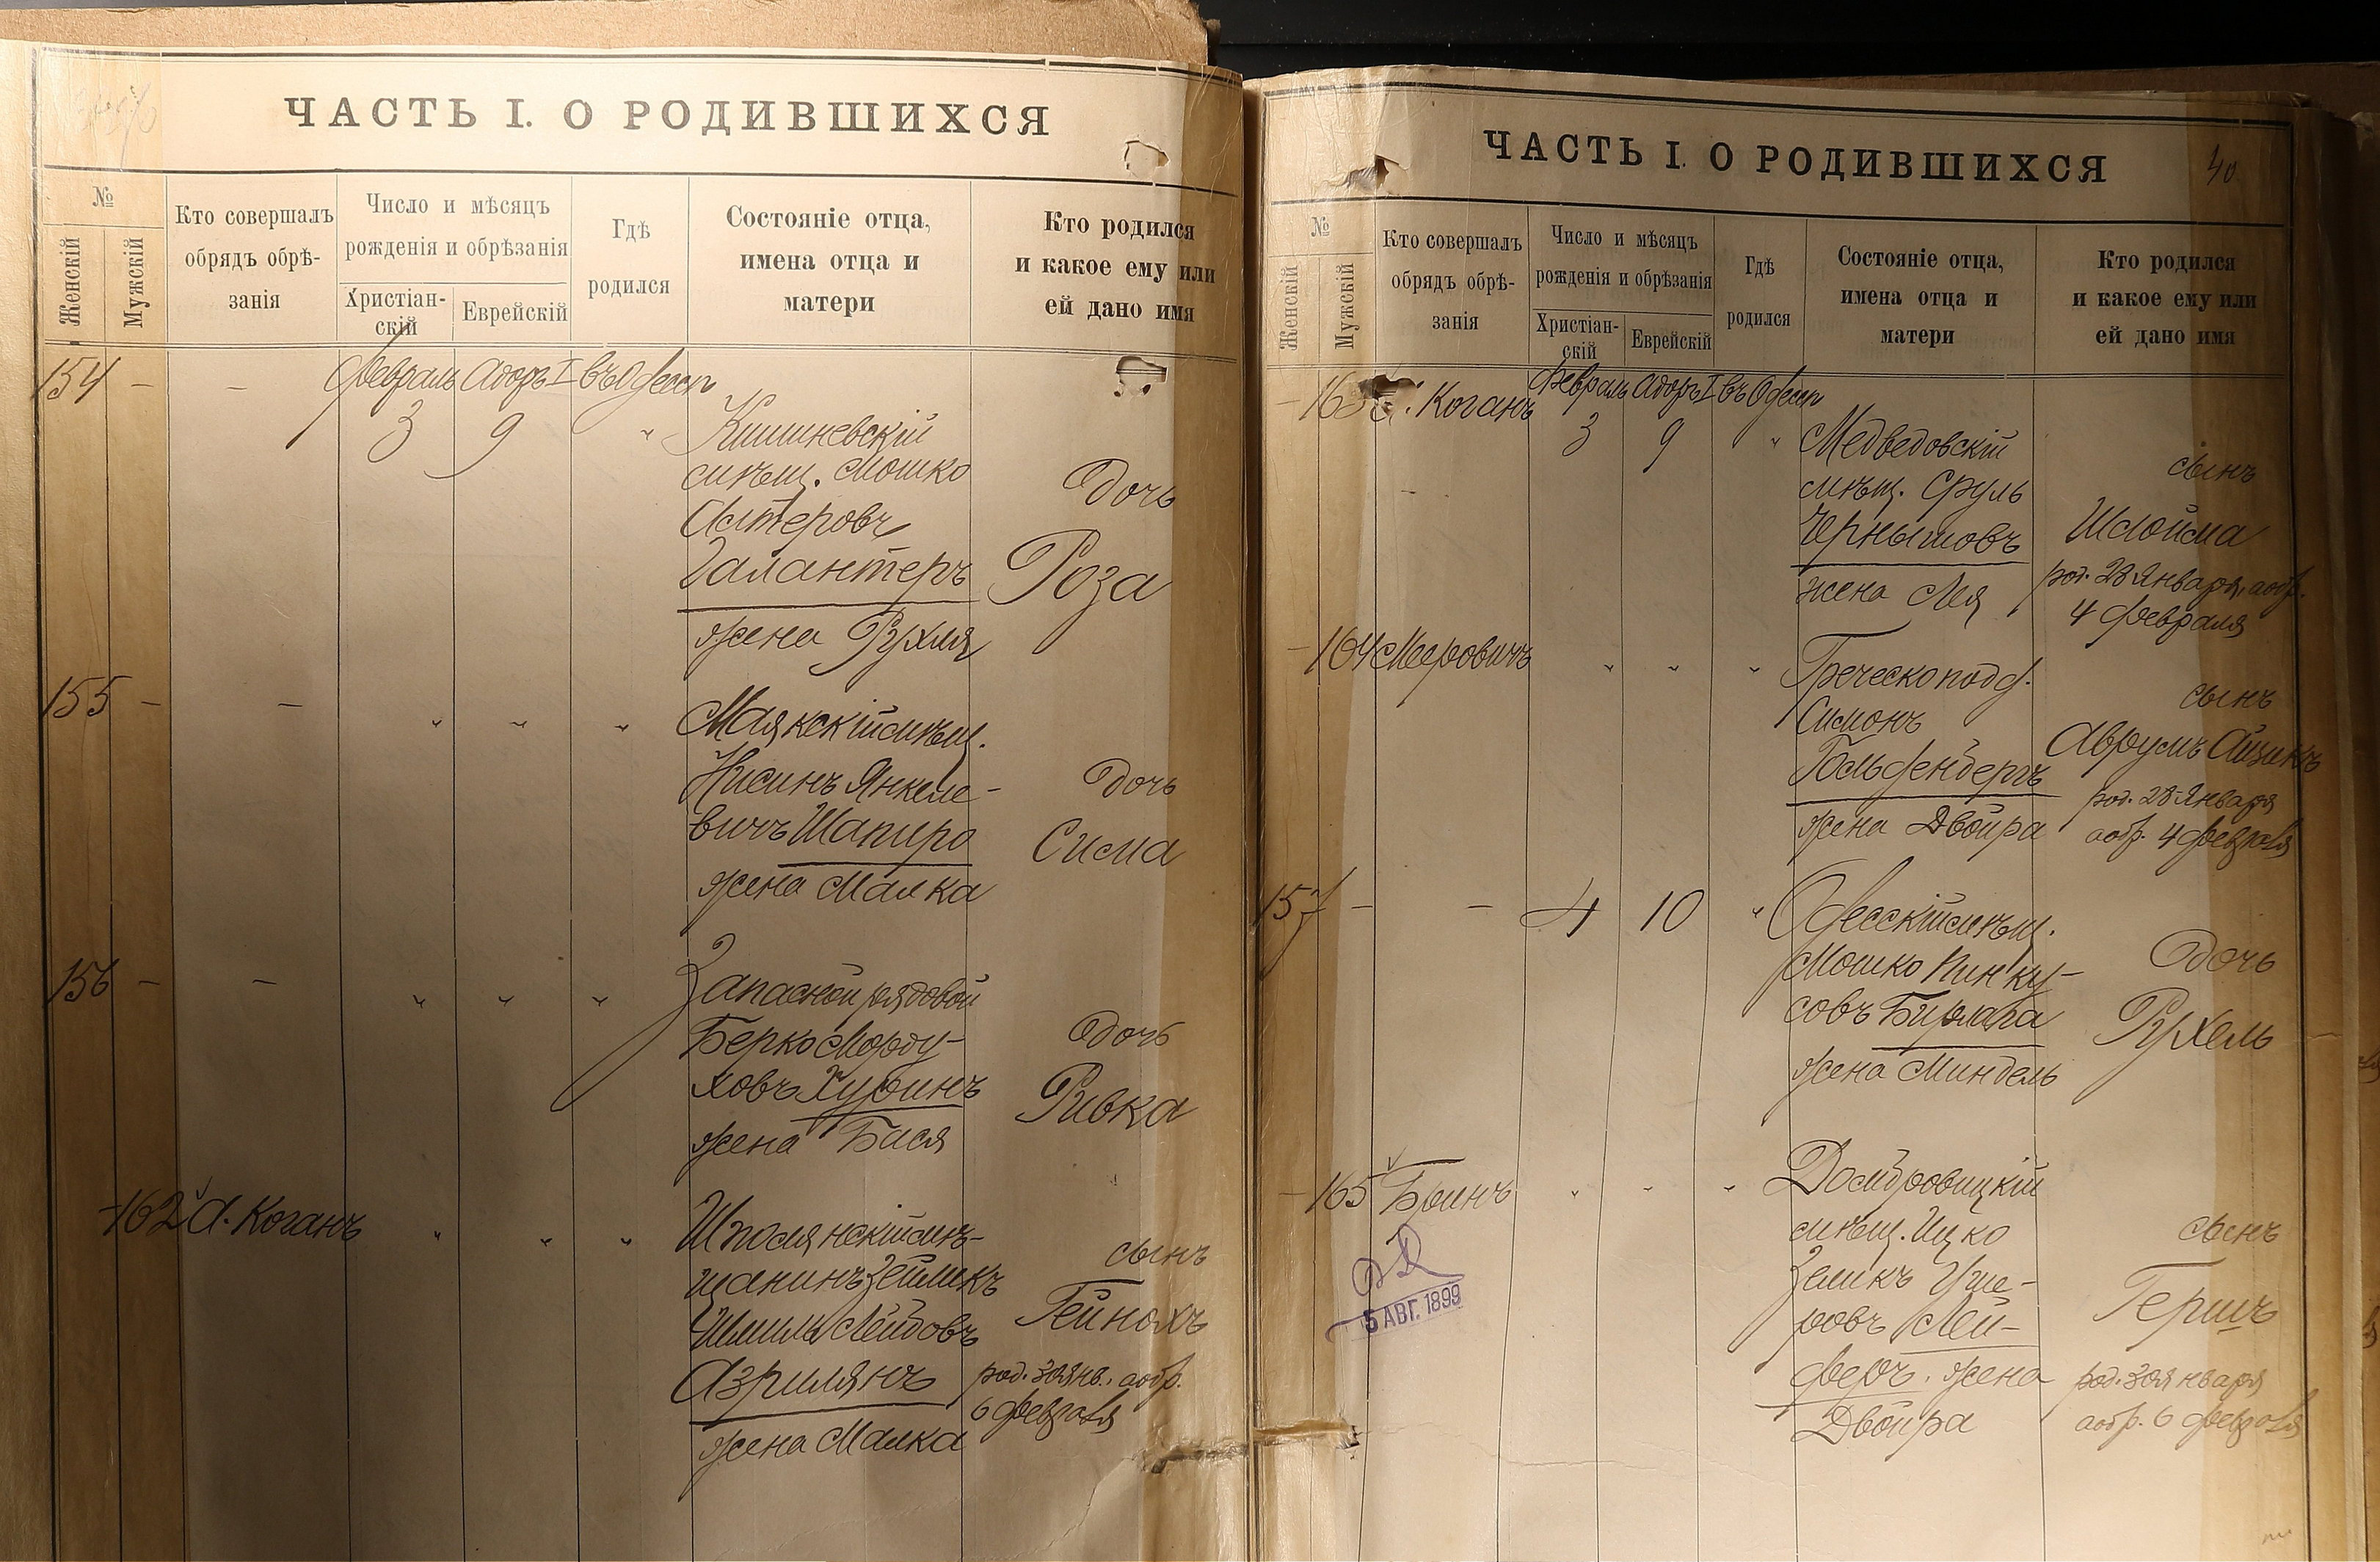 ЧАСТЬ I. О РОДИВШИХСЯ
№
Женскій
Мужскій
Кто совершалъ
обрядъ обрѣ-
занія
Число и мѣсяцъ
рожденія и обрѣзанія
Христіан-
скій
Еврейскій
Гдѣ
родился
Состояніе отца,
имена отца и
матери
Кто родился
и какое ему или
ей дано имя
154 - - Февраль Адоръ I въ Одессѣ
3 9 "
Кишиневскій
мѣщ. Мошко
Алтеровъ
Галантеръ
жена Рухля
Дочь
Роза
155 - - " " "
Маякскій мѣщ.
Нисинъ Янкеле-
вичъ Шапиро
жена Малка
Дочь
Сима
156 - - " " "
Запасной рядовой
Берко Морду-
ховъ
жена Бася
Дочь
Ривка
-162 А. Коганъ " " "
Шполянскій мѣ-
щанинъ Зейликъ
Шмиль Лейбовъ
Азрилянъ
жена Малка
сынъ
Гейнохъ
род. 30 янв., а обр.
6 февраля
ЧАСТЬ I. О РОДИВШИХСЯ
40
№
Женскій
Мужскій
Кто совершалъ
обрядъ обрѣ-
занія
Число и мѣсяцъ
рожденія и обрѣзанія
Христіан-
скій
Еврейскій
Гдѣ
родился
Состояніе отца,
имена отца и
матери
Кто родился
и какое ему или
ей дано имя
-163 Коганъ Февраль Адоръ I въ Одессѣ
3 9 "
Медведовскій
мѣщ. Сруль
Чернышовъ
жена Лея
сынъ
Шлойма
род. 28 января, а обр.
4 февраля
-164 Меровичъ " " "
Греческоподд.
Симонъ
Гольденбергъ
жена Двойра
сынъ
Аврумъ Айзикъ
род. 28 января
а обр. 4 февраля
157 - - 4 10 "
Одесскій мѣщ.
Мошко Пинку-
совъ
жена Миндель
Дочь
Рухель
-165 Бринъ " " "
Домбровицкій
мѣщ. Ицко
Зеликъ Уше-
ровъ Лей-
феръ. жена
Двойра
сынъ
Гершъ
род. 30 января
а обр. 6 февраля
5 АВГ. 1899